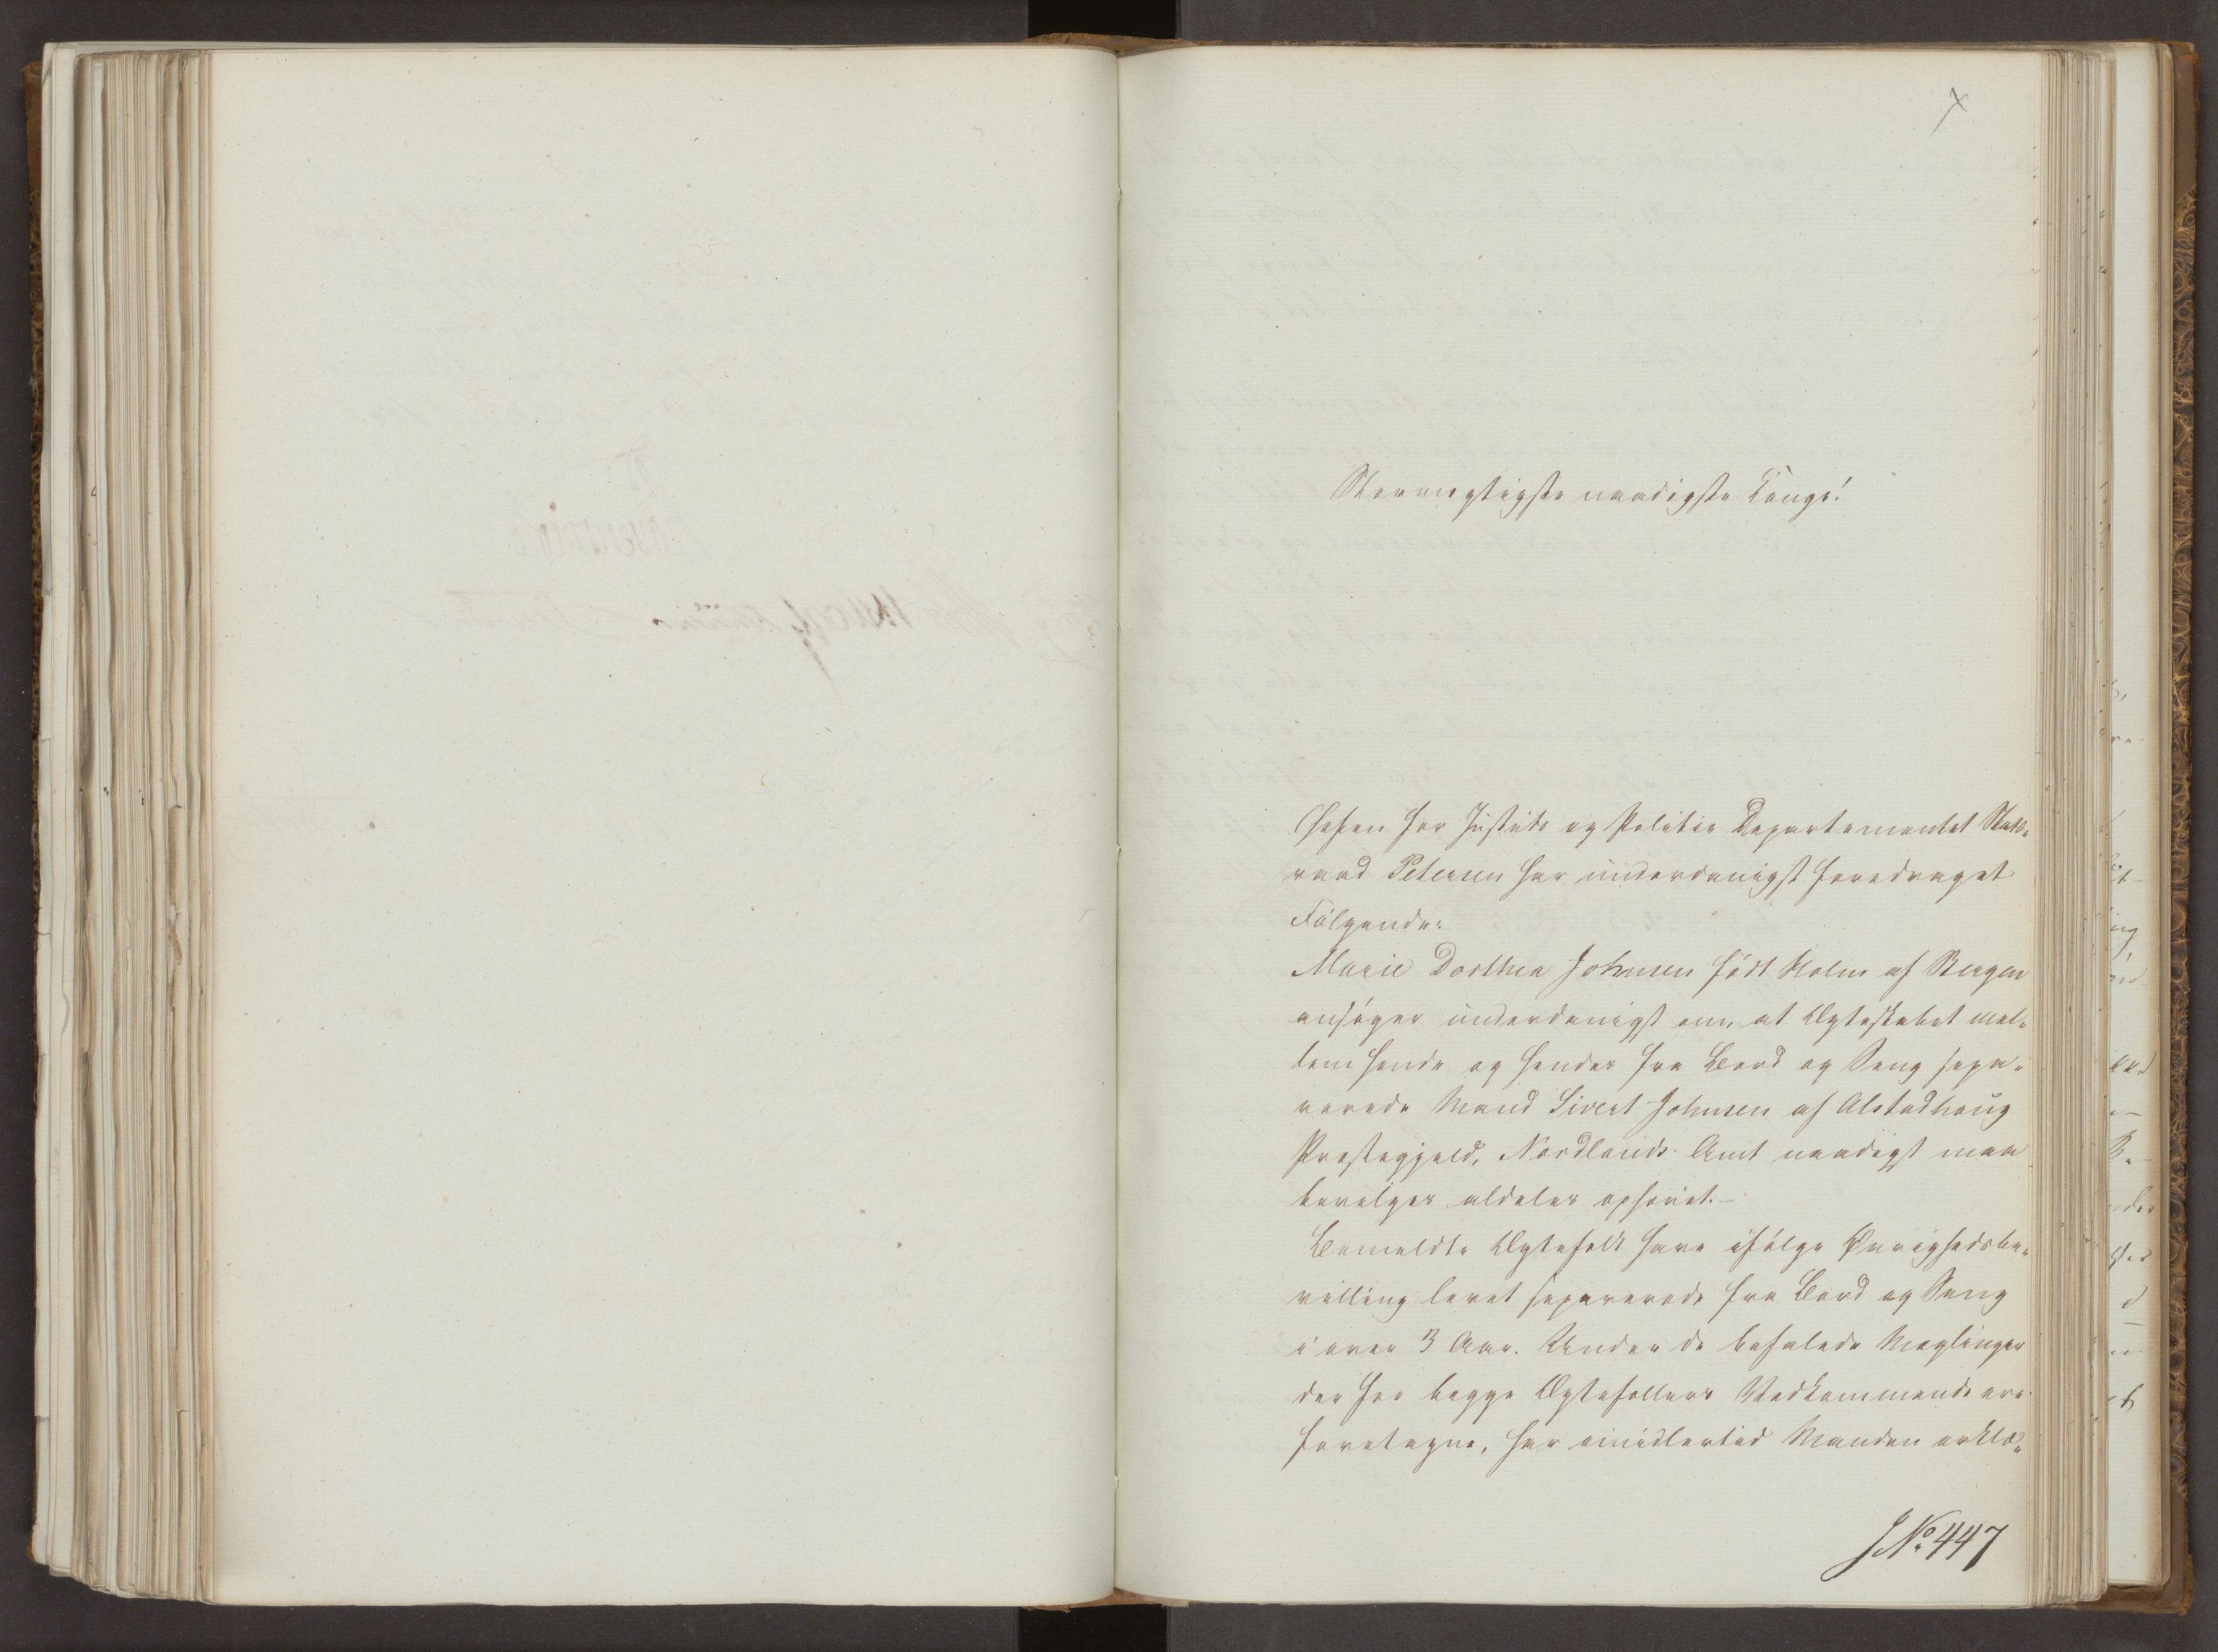 Stormægtigste naadigste Konge!
Chefen for Justits og Politie Departementet Stats-
raad Petersen har underdanigst foredraget
Følgende:
Marie Dorthea Johnsen født Holm af Bergen
ansøger underdanigst om, at Ægteskabet mel-
lem hende og hendes fra Bord og Seng sepa-
rerede Mand Sivert Johnsen af Alstadhoug
Præstegjeld, Nordlands Amt naadigst maa
bevilges aldeles ophævet.-
Bemeldte Ægtefolk have ifølge Øvrighedsbe-
villing levet separerede fra Bord og Seng
i over 3 Aar. Under de befalede Mæglinger
der for begge Ægtefællers Vedkommende ere
foretagne, har imidlertid Manden erklæ-
JNo. 447